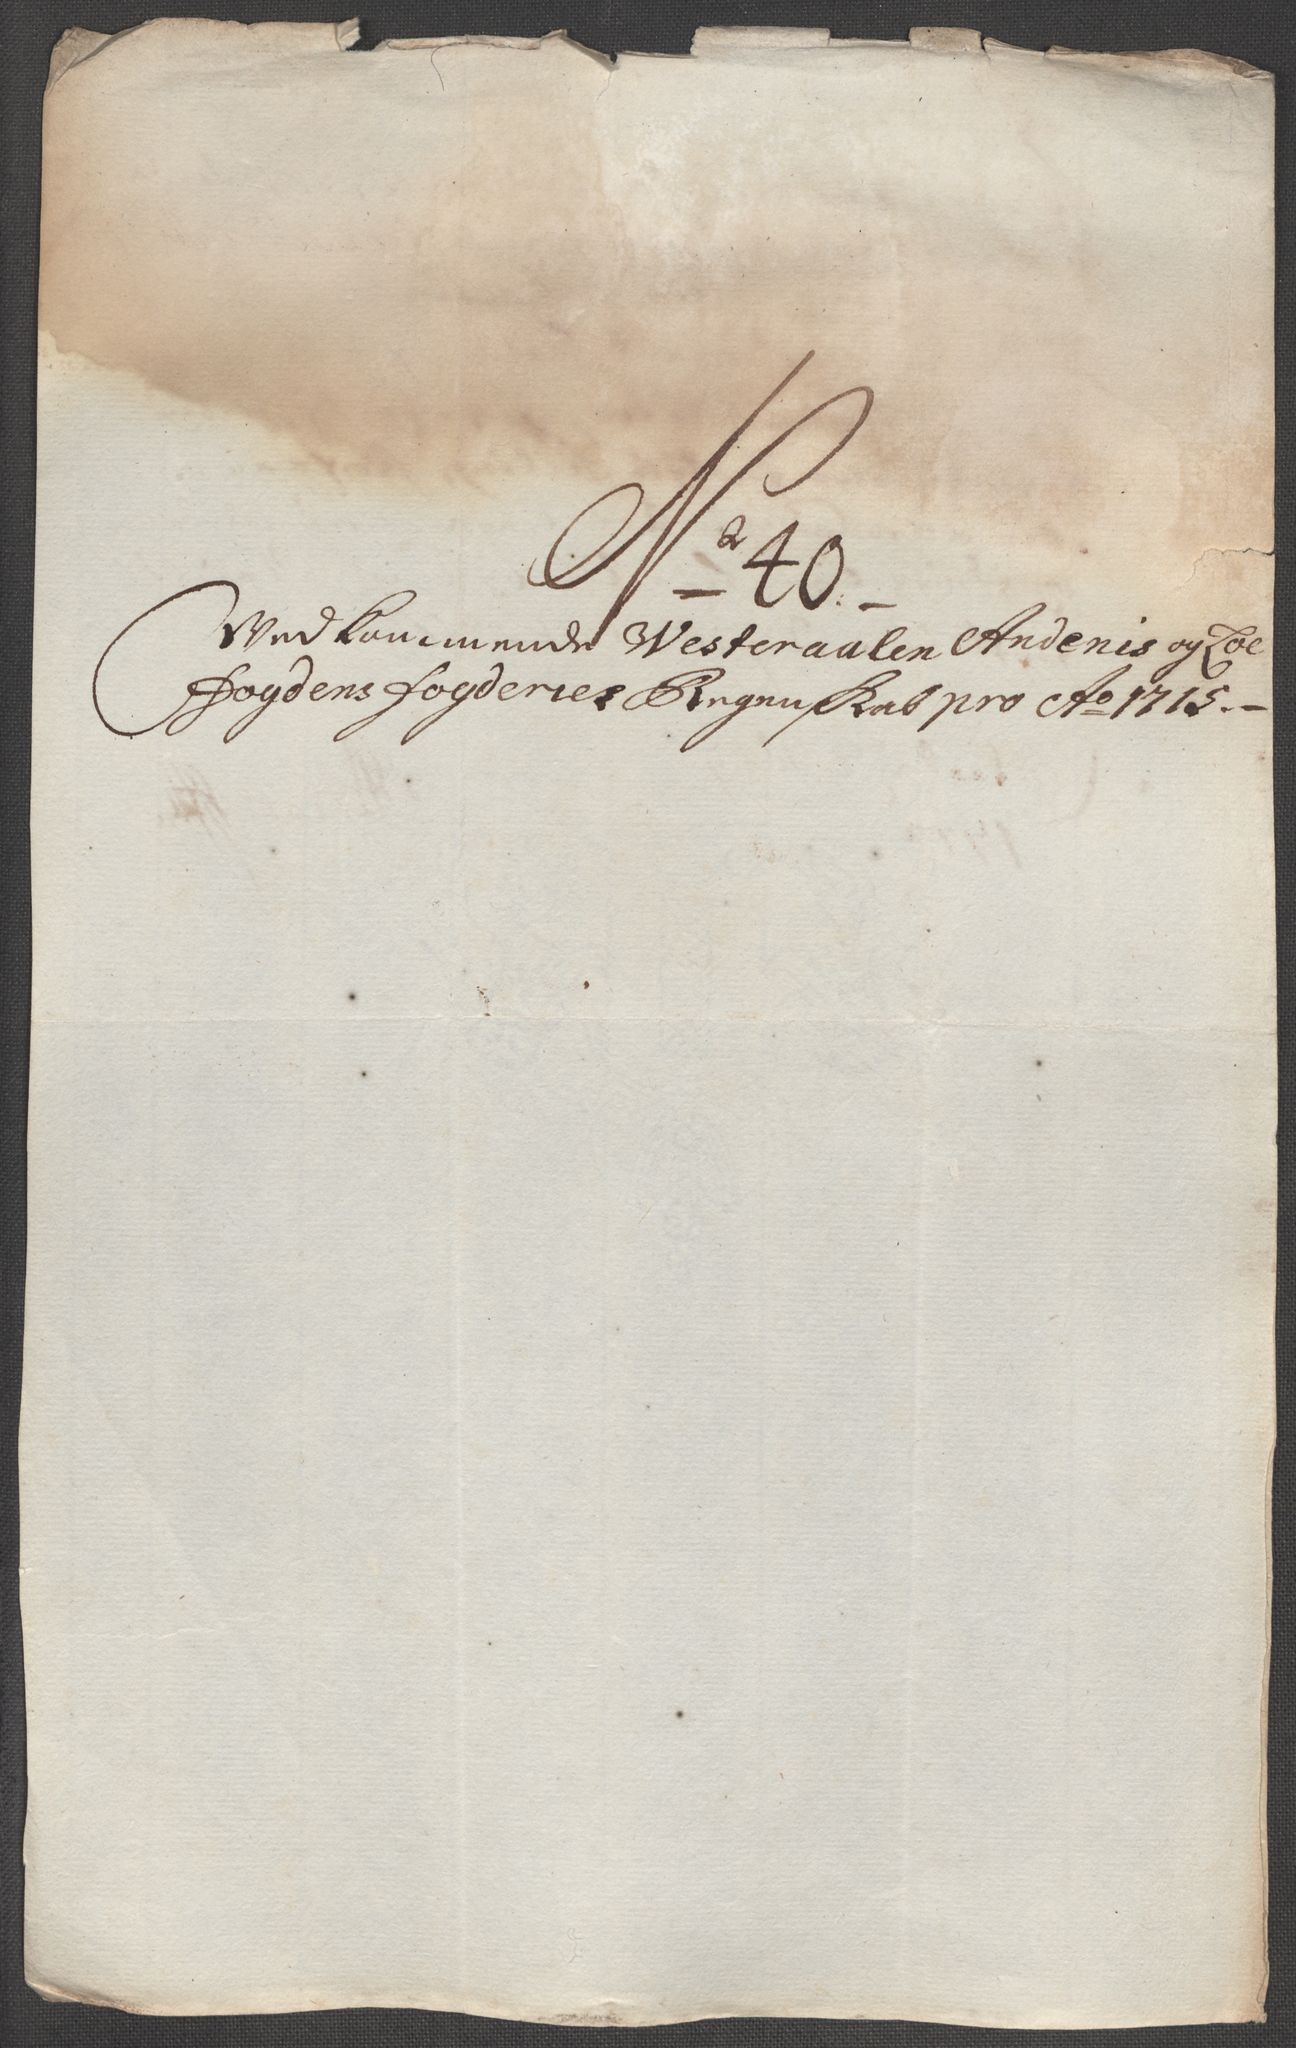 No 40.
Vedkommende Westeraalen Andenis og Loe
ffoygdens fogderies Regnskab pro Ao 1715.